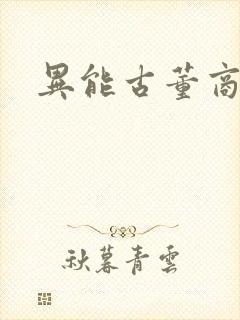 異能古董商
秋暮青雲